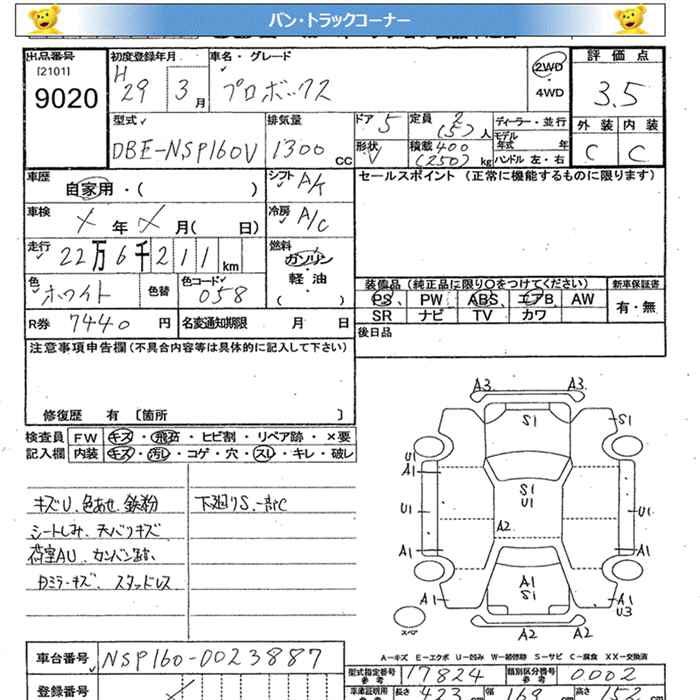 バン・トラックコーナー
出品番号
[2101]
9020
初度登録年月
H29 3月
車名・グレード
プロボックス
2WD
・
4WD
評価点
3.5
型式
DBE-NSP160V
排気量
1300 CC
ドア 5
定員 2 (5)人
形状 V
積載 400 (250) kg
ディーラー・並行
モデル年式 年
ハンドル 左・右
外装 内装
C C
車歴
自家用・( )
シフト A/T
セールスポイント (正常に機能するものに限ります)
車検
X 年 X 月( 日)
冷房 A/C
走行
22万6千211km
燃料
ガソリン
・
軽油
( )
色
ホワイト
色替
色コード
058
装備品(純正品に限り○をつけてください)
新車保証書
PS PW ABS エアB AW
SR ナビ TV カワ
有・無
R券 7440 円
名変通知期限 月 日
後日品
注意事項申告欄(不具合内容等は具体的に記入して下さい)
修復歴 有 〔箇所 〕
検査員 FW キズ・飛石・ヒビ割・リペア跡・×要
記入欄 内装 キズ・汚レ・コゲ・穴・スレ・キレ・破レ
キズU、色あせ、鉄粉
下廻りS、一部C
シートしみ、天バリキズ
荷室AU、カンバン跡、
Dミラーキズ、スタッドレス
A3 A3
S1
S1
U1
A1
S1
U1
U1
U1
A2
A1
A1
A1
S1
A1
A1
U3
A2 A2
スペア
A-キズ E-エクボ U-凹み W-補修跡 S-サビ C-腐食 XX-交換済
車台番号 NSP160-0023887
型式指定番号
参考
17824
類別区分番号
参考
0002
登録番号
車庫証明用
参考
長さ 423 cm
幅 169 cm
高さ 152 cm